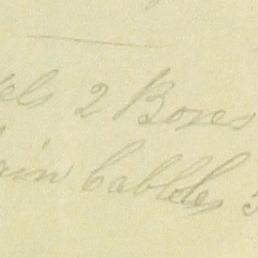 els 2 Boxes
ain Cables 3